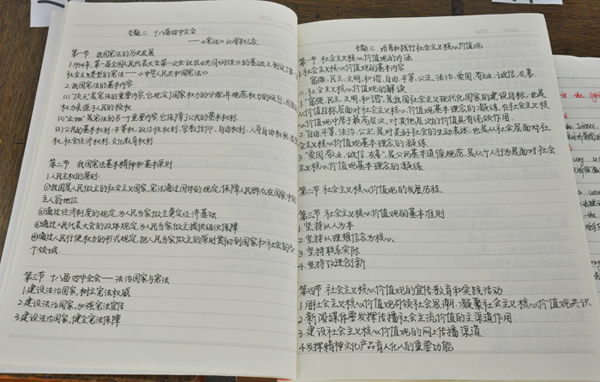 专题二 十八届四中全会
——《宪法》的周年纪念
第一节 我国宪法的历史发展
社会主义类型的宪法——《中华人民共和国宪法》
二、宪法的基本内容
权力来源于人民的授权
利、社会经济权利、文化教育权利
第二节 我国宪法基本精神和基本原则
1.人民主权的原则
①我国是人民做主的社会主义国家,宪法通过国体的规定,保障人民群众在国家中的
主人翁地位
②通过经济制度的规定,为人民当家做主奠定经济基础
③通过人民代表大会的政体规定,为人民当家做主提供组织保障
④通过人民行使权力的形式规定,把人民当家做主的原则贯彻到国家和社会的各
个领域
第三节 十八届四中全会——法治国家与宪法
1.建设法治国家,树立宪法权威
2.建设法治国家,加强宪法宣传
3.建设法治国家,健全宪法保障
专题三 培育和践行社会主义核心价值观
第一节 社会主义核心价值观的方法
一、社会主义核心价值观的基本内容
富强、民主、文明、和谐、自由、平等、公正、法治、爱国、敬业、诚信、友善
二、社会主义核心价值观的解读
1."富强、民主、文明、和谐",是我国社会主义现代化国家的建设目标,也是
从价值目标层面对社会主义核心价值观基本理念的凝练,在社会主义核
心价值观中居于最高层次,对其他层次的价值具有统领作用。
2."自由、平等、法治、公正",是对美好社会的生动表述,也是从社会层面对社
会主义核心价值观基本理念的凝练
3."爱国、敬业、诚信、友善",是公民基本道德规范,是从个人行为层面对社会
主义核心价值观基本理念的凝练
第二节 社会主义核心价值观的发展历程
第三节 社会主义核心价值观的基本准则
1.坚持以人为本
2.坚持以理想信念为核心
3.坚持联系实际
4.坚持改进创新
第四节 社会主义核心价值观的宣传教育和实践活动
1.用社会主义核心价值观引领社会思潮、凝聚社会主义核心价值观共识
2.新闻媒体要发挥传播社会主流价值的主渠道作用
3.建设社会主义核心价值观的网上传播渠道
4.发挥精神文化产品育人化人的重要功能